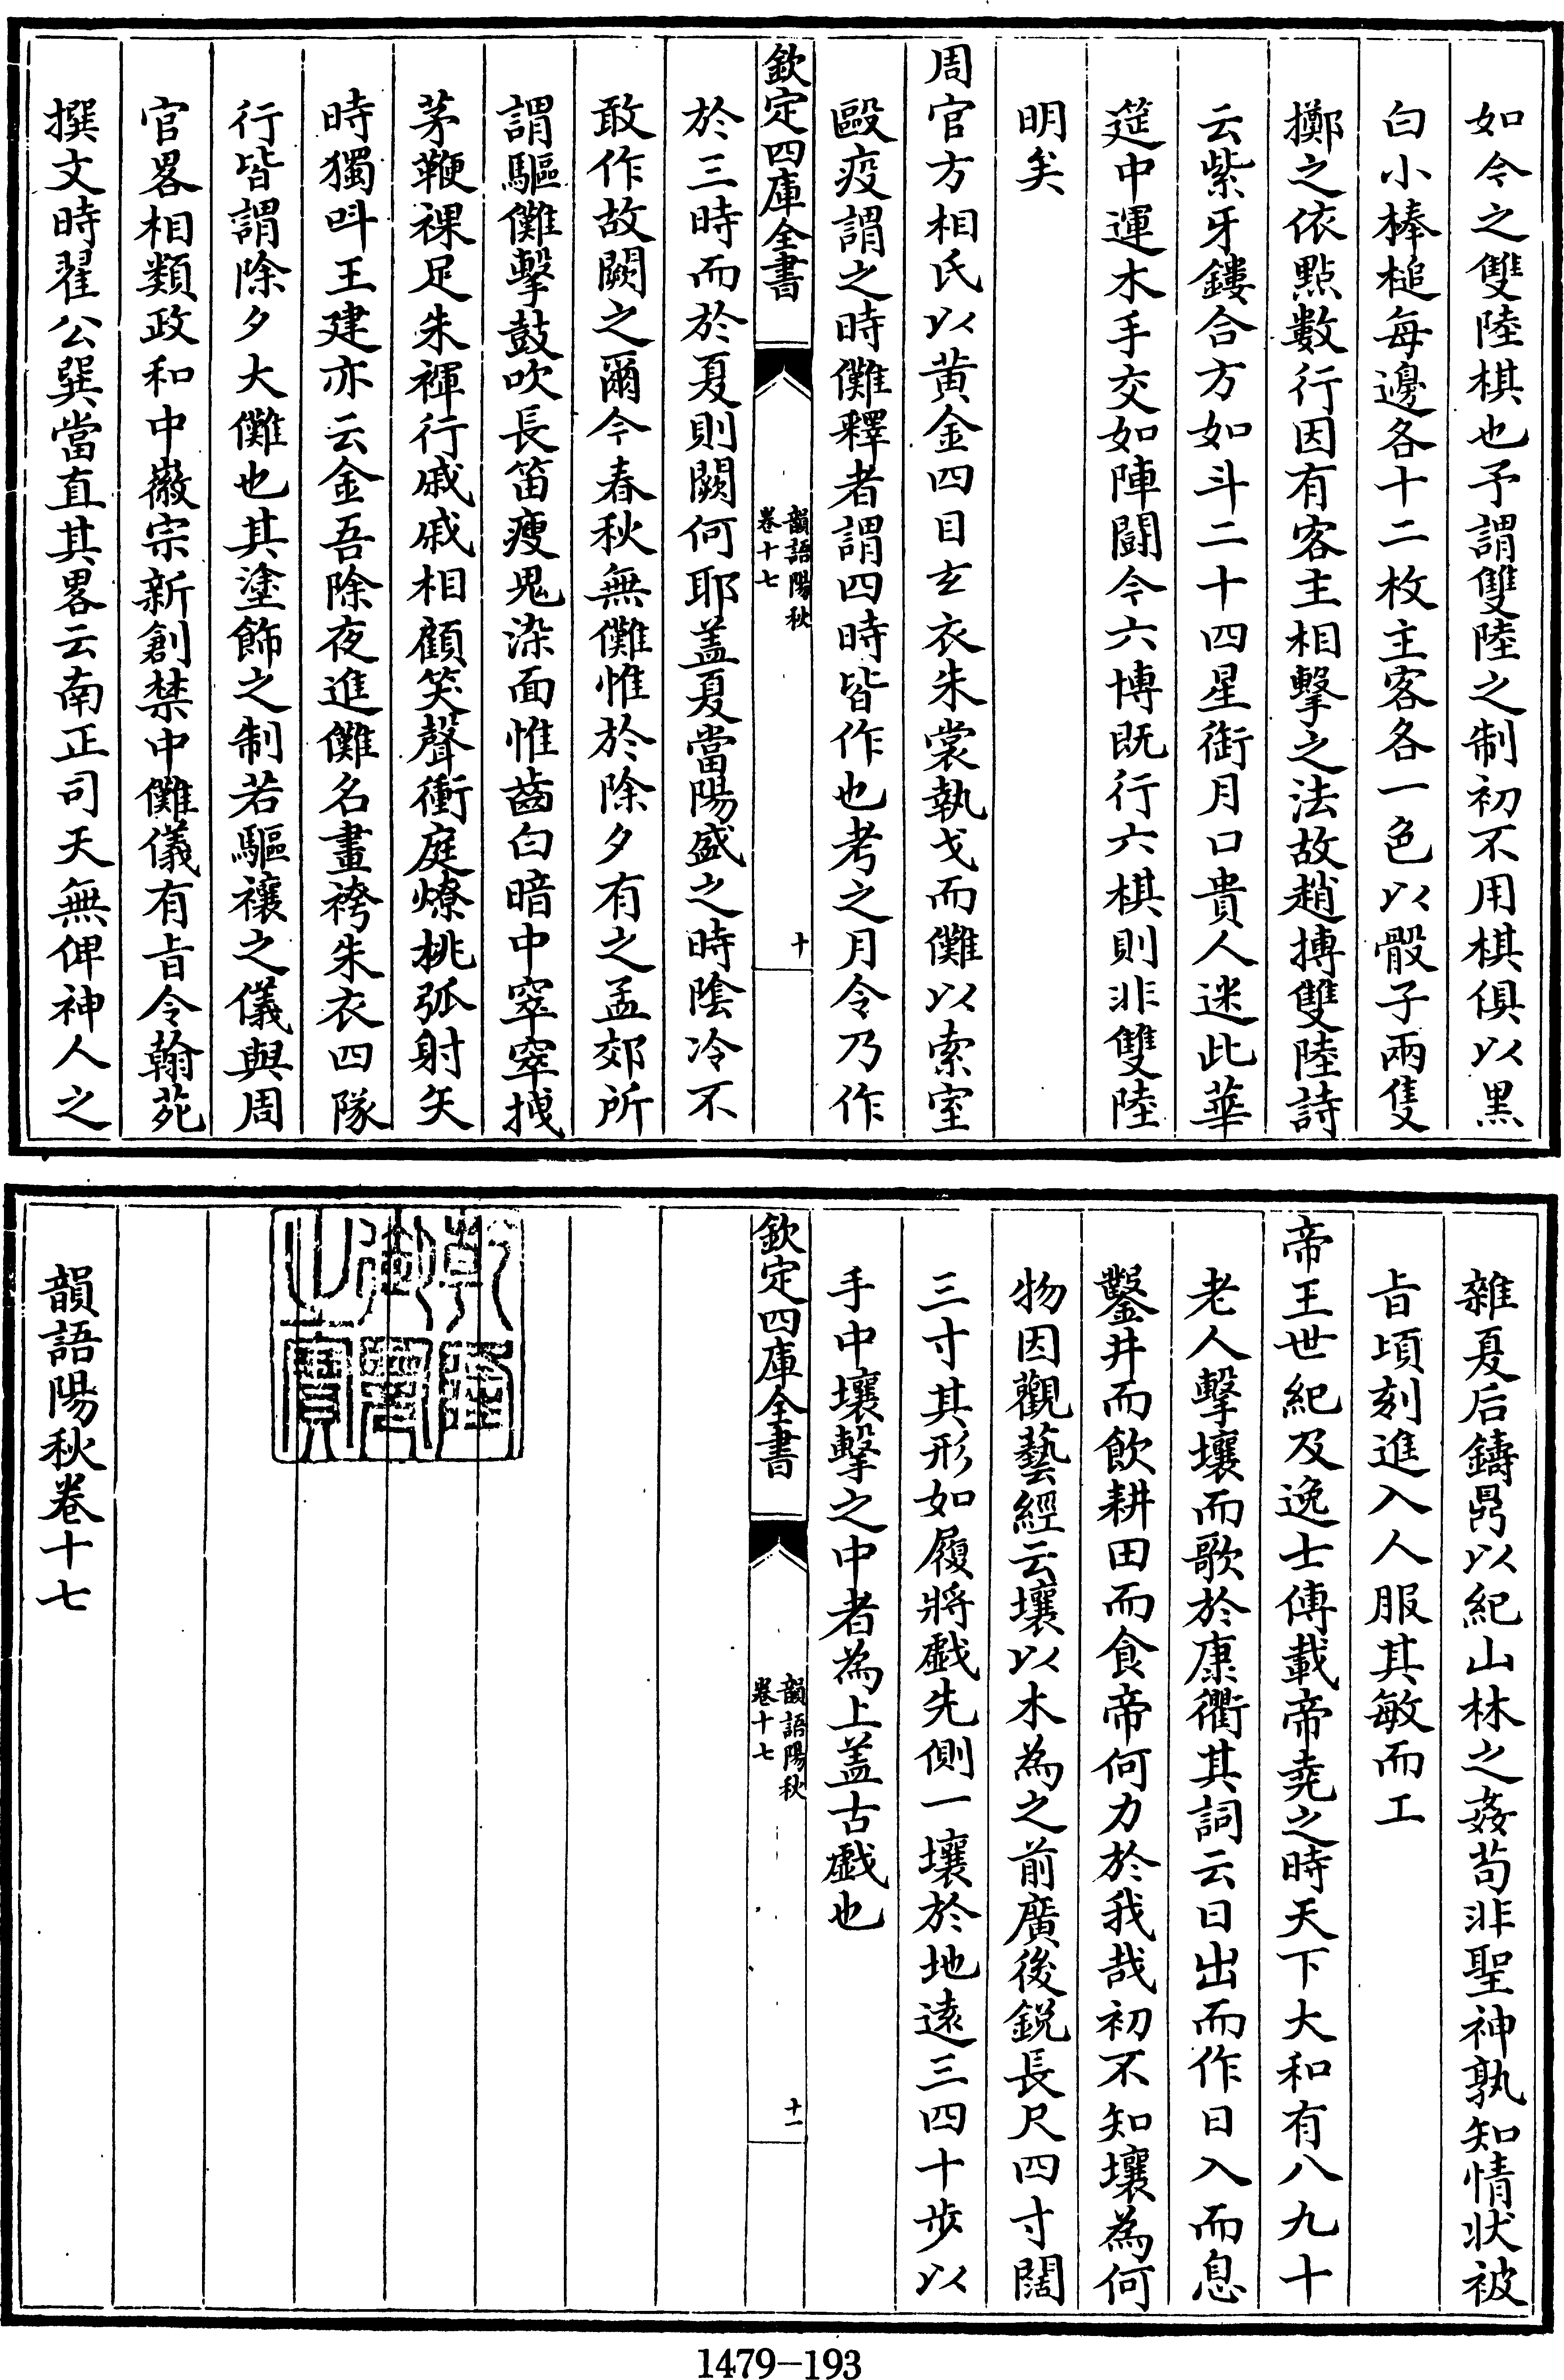 如今之雙陸棋也予謂雙陸之制初不用棋俱以黒
白小棒槌每邊各十二枚主客各一色以骰子兩隻
擲之依點數行因有客主相擊之法故趙摶雙陸詩
云紫牙鏤合方如斗二十四星銜月口貴人迷此華
筵中運木手交如陣鬬今六博既行六棋則非雙陸
明矣
周官方相氏以黄金四目玄衣朱裳執戈而儺以索室
毆疫謂之時儺釋者謂四時皆作也考之月令乃作
欽定四庫全書
韻語陽秋
卷十七
十
於三時而於夏則闕何耶盖夏當陽盛之時隂冷不
敢作故闕之爾今春秋無儺惟於除夕有之孟郊所
謂驅儺擊鼓吹長笛瘦鬼染面惟齒白暗中窣窣拽
茅鞭裸足朱褌行戚戚相顧笑聲衝庭燎桃弧射矢
時獨叫王建亦云金吾除夜進儺名畫袴朱衣四隊
行皆謂除夕大儺也其塗飾之制若驅禳之儀與周
官畧相類政和中徽宗新創禁中儺儀有旨令翰苑
撰文時翟公巽當直其畧云南正司天無俾神人之
雜夏后鑄鼎以紀山林之姦茍非聖神孰知情状被
旨頃刻進入人服其敏而工
帝王世紀及逸士傳載帝堯之時天下大和有八九十
老人擊壤而歌於康衢其詞云日出而作日入而息
鑿井而飲耕田而食帝何力於我哉初不知壤為何
物因觀藝經云壤以木為之前廣後鋭長尺四寸闊
三寸其形如履將戯先側一壤於地遠三四十步以
手中壤擊之中者為上盖古戯也
欽定四庫全書
韻語陽秋
卷十七
十一
乾隆
御覽
之寳
韻語陽秋卷十七
1479-193